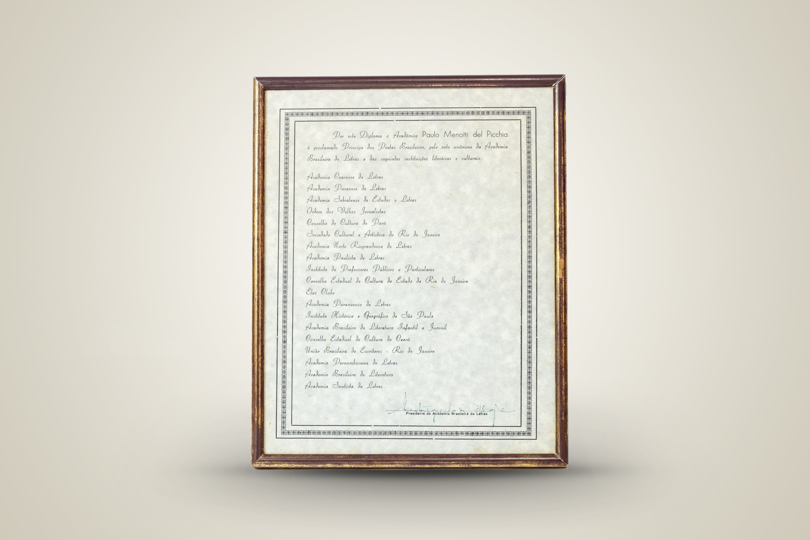 Por este Diploma o Acadêmico Paolo Menotti del Picchia
é proclamado Príncipe dos Poetas Brasileiros, pelo voto unânime da Academia
Brasileira de Letras e das seguintes instituições literárias e culturais:
Academia Cearense de Letras
Academia Paraense de Letras
Academia Sobralense de Estudos e Letras
Ordem dos Velhos Jornalistas
Conselho de Cultura do Pará
Sociedade Cultural e Artística do Rio de Janeiro
Academia Norte Riograndense de Letras
Academia Paulista de Letras
Instituto de Professores Públicos e Particulares
Conselho Estadual de Cultura do Estado do Rio de Janeiro
Elos Clube
Academia Paranaense de Letras
Instituto Histórico e Geográfico de São Paulo
Academia Brasileira de Literatura Infantil e Juvenil
Conselho Estadual de Cultura do Ceará
União Brasileira de Escritores - Rio de Janeiro
Academia Pernambucana de Letras
Academia Brasileira de Literatura
Academia Santista de Letras
Presidente da Academia Brasileira de Letras